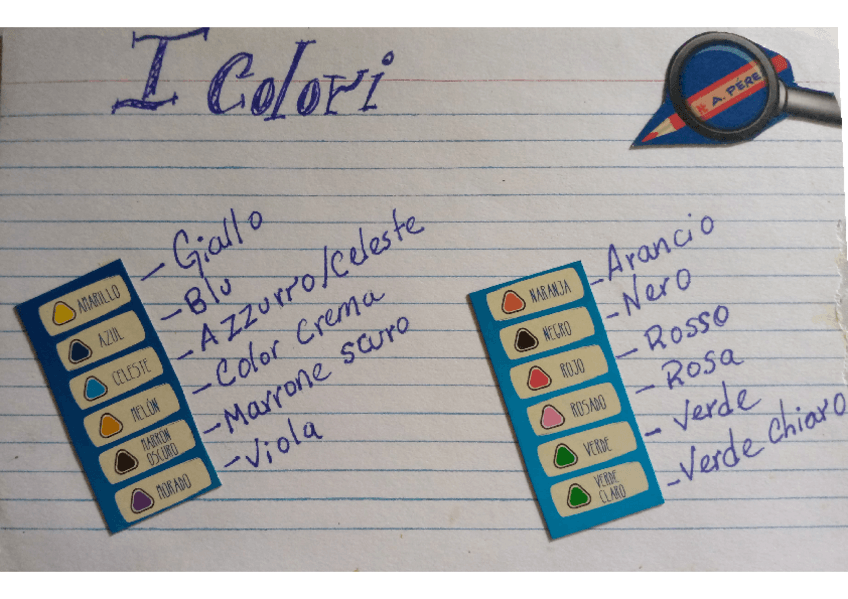 I Colori
R A. PÉRE
AMARILLO - Giallo
AZUL - Blu
CELESTE - Azzurro/Celeste
MELÓN - Color Crema
MARRÓN OSCURO - Marrone scuro
MORADO - Viola
NARANJA - Arancio
NEGRO - Nero
ROJO - Rosso
ROSADO - Rosa
VERDE - Verde
VERDE CLARO - Verde Chiaro